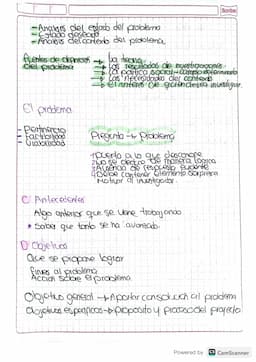 - Analisis del estado del problema
- Estado deseado
- Analisis del contexto del problema.
Fuentes de
del problema
→ La teoria
→ Los resultados de investigaciones
→ La politica social
→ Las necesidades del contexto
→ El interes de
El problema
- Pertinencia
- Factibilidad
- Viabilidad
Pregunta → Problema
No se deduce de manera lógica
Ausencia de respuesta evidente
Debe contener elemento sorpresa
Motivar al investigador.
C) Antecedentes
Algo anterior que se viene trabajando
* Saber que tanto se ha avanzado.
D) Objetivos
Que se propone lograr
Fines al problema
Acción sobre el problema
Objetivo general → Aportar con solución al problema
Objetivos especificos → Proposito y proceso del proyecto
Powered by CS CamScanner